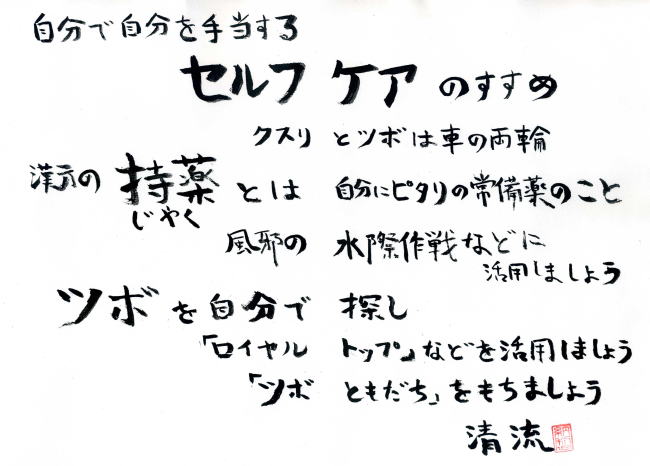 自分で自分を手当する
セルフケアのすすめ
クスリとツボは車の両輪
漢方の持薬とは自分にピタリの常備薬のこと
じやく
風邪の水際作戦などに
活用しましょう
ツボを自分で探し
「ロイヤルトップ」などを活用しましょう
「ツボともだち」をもちましょう
清流